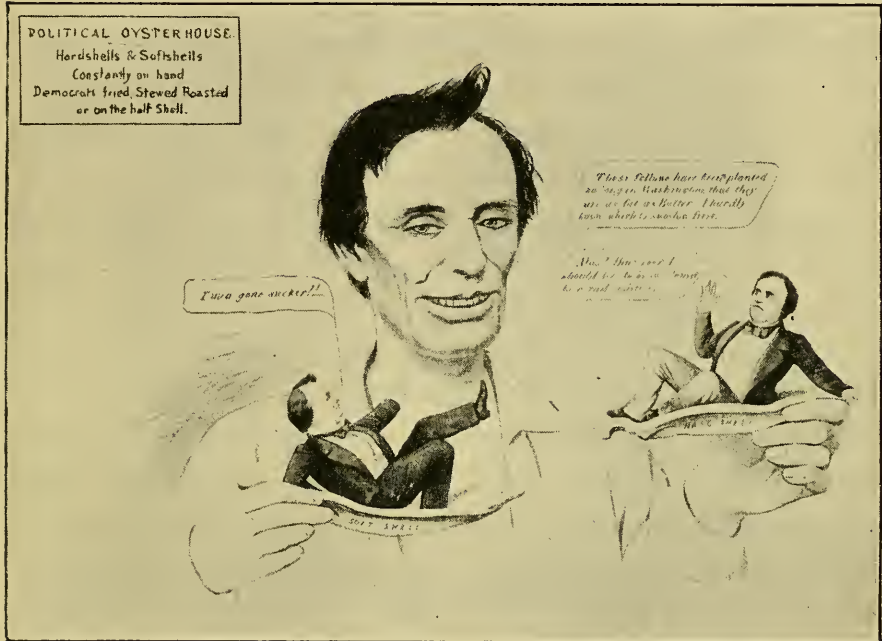 POLITICAL OYSTERHOUSE.
Hardshells & Softshells
Constantly on hand
Democrats fried, Stewed Roasted
or on the half Shell.
These fellows have been planted
so long in Washington that they
are as fat as Butter. I hardly
know which to swallow first.
that ever I
should be
I'm a gone sucker!!
HARD SHELL
SOFT SHELL